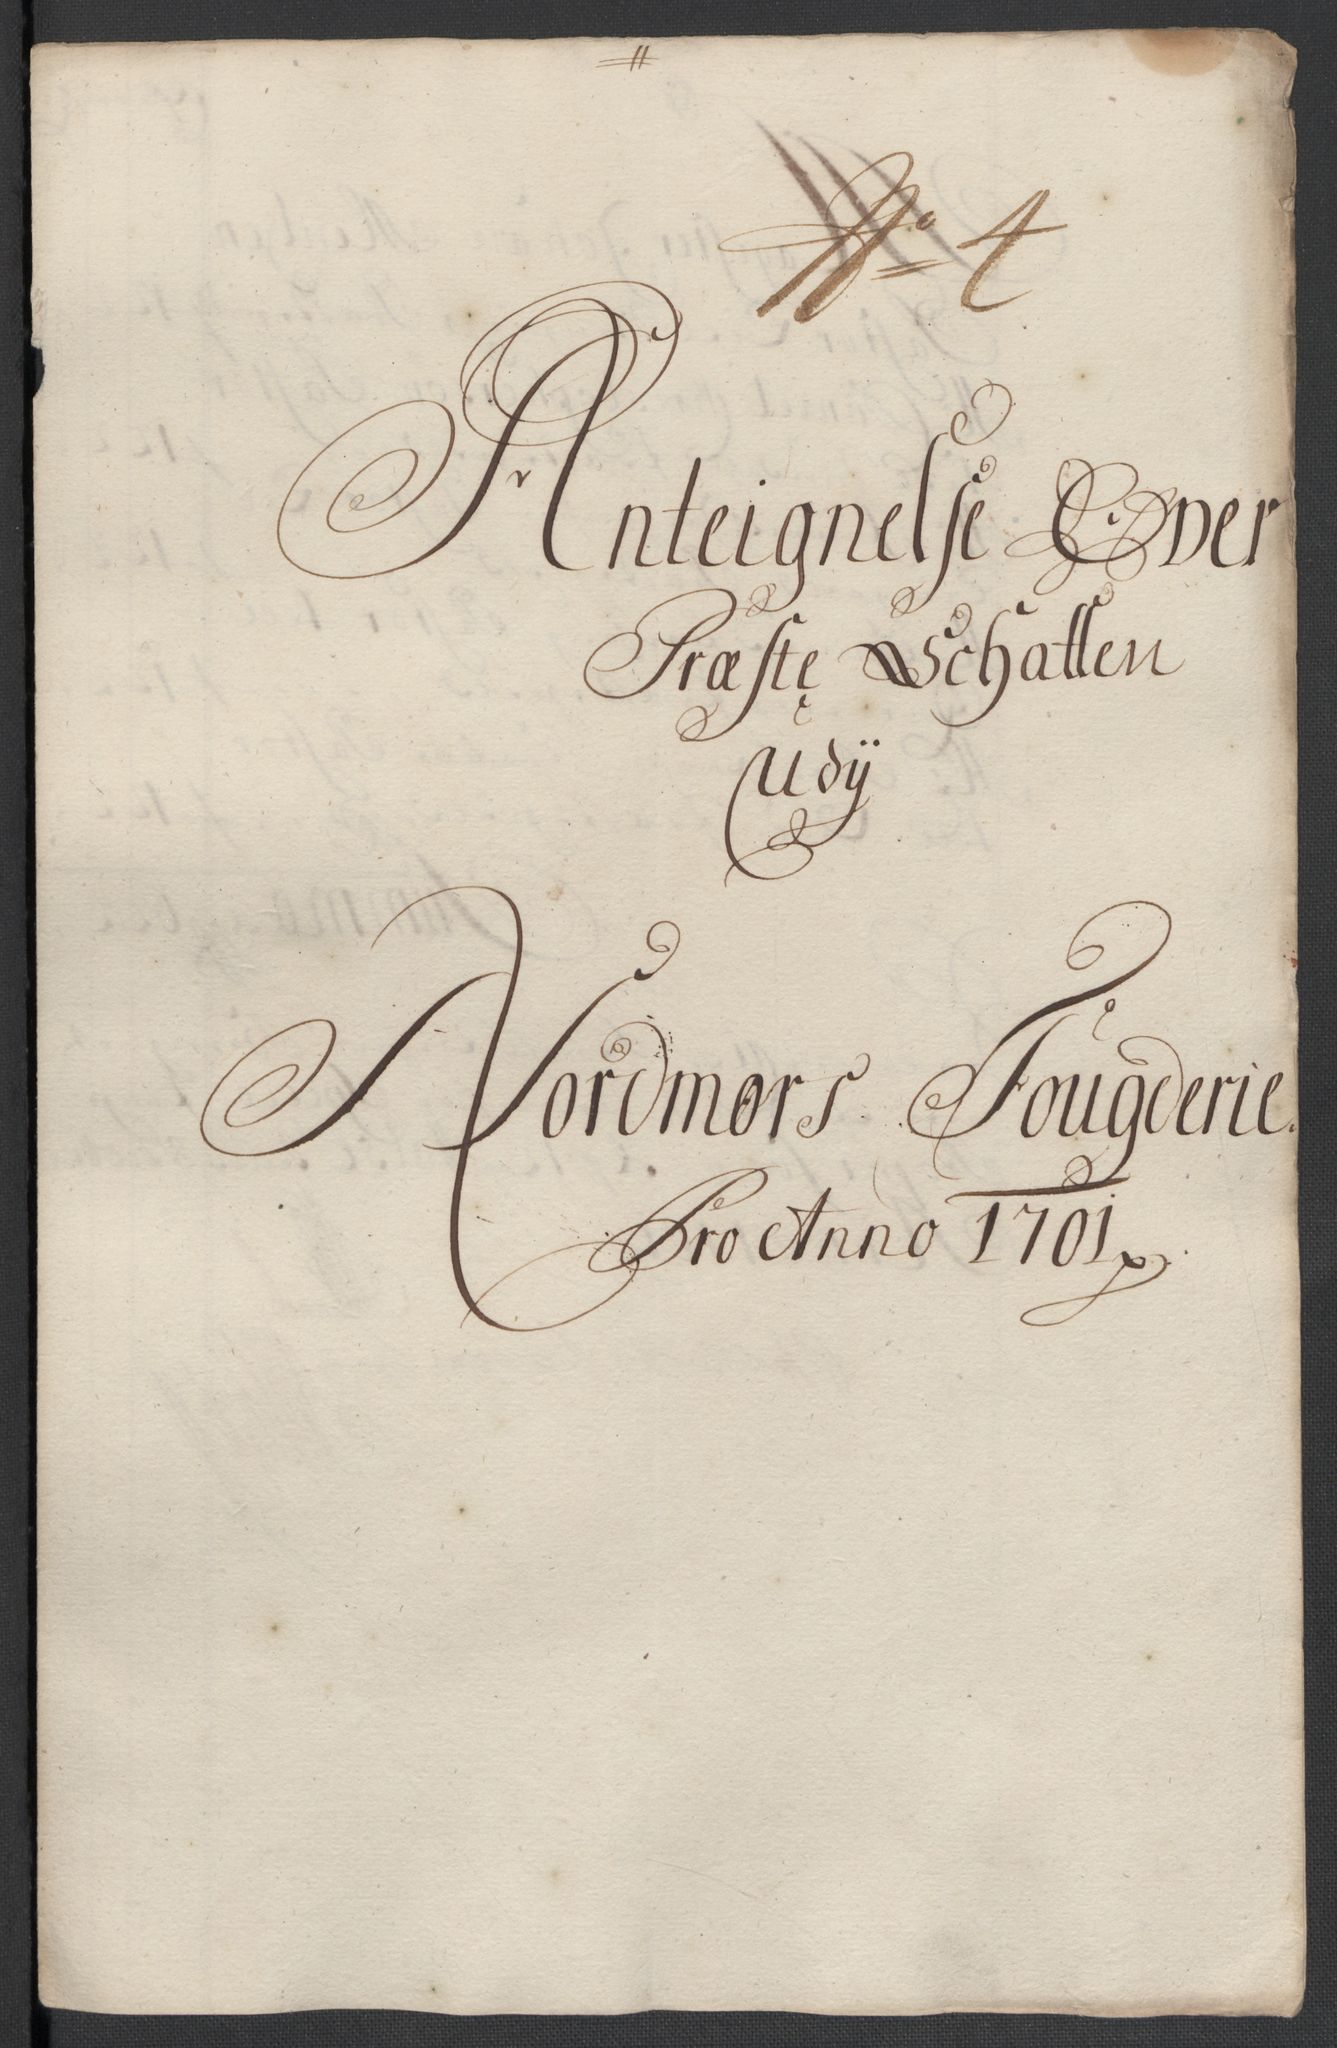 No 4
Anteignelse Over
Præste Schatten
Udÿ
Nordmørs Fougderie.
Pro Anno 1701